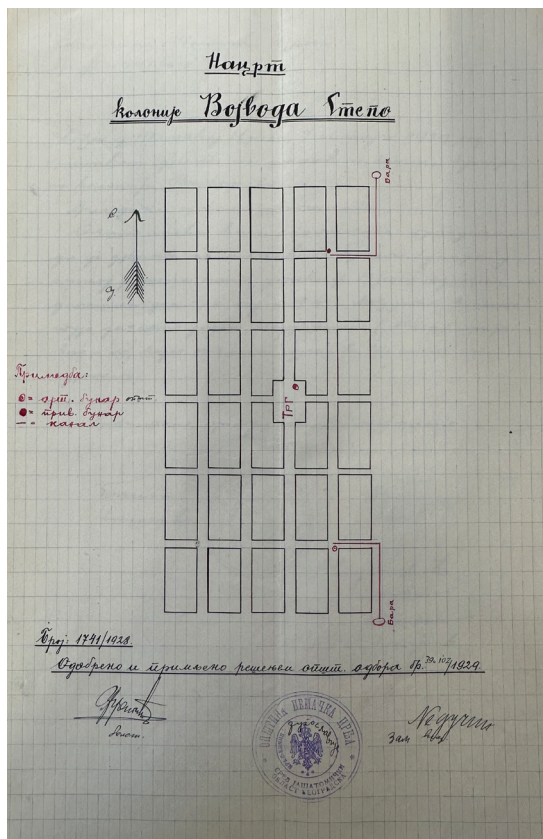 Нацрт
колоније Војвода Степо
Бара
С
Ј
Примедба:
= арт. бунар општ
= прив. бунар
-- = канал
ТРГ
Бара
Број: 1741/1928
Одобрено и примљено решењем општ. одбора бр. /1929.
Зам
ОПШТИНА НЕМАЧКА ЦРЊА